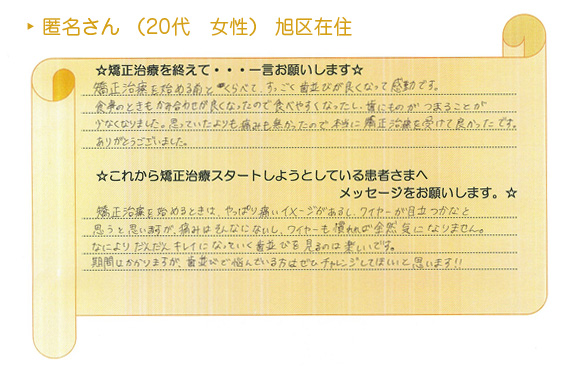 ▸ 匿名さん （20代　女性） 旭区在住
☆矯正治療を終えて・・・一言お願いします☆
矯正治療を始める前とくらべて、すっごく歯並びが良くなって感動です。
食事のときもかみ合わせが良くなったので食べやすくなったし、歯にものがつまることが
少なくなりました。思っていたよりも痛みも無かったので本当に矯正治療を受けて良かったです。
ありがとうございました。
☆これから矯正治療スタートしようとしている患者さまへ
メッセージをお願いします。☆
矯正治療を始めるときは、やっぱり痛いイメージがあるし、ワイヤーが目立つかなと
思うと思いますが、痛みはそんなにないし、ワイヤーも慣れれば全然気になりません。
なによりだんだんキレイになっていく歯並びを見るのは楽しいです。
期間はかかりますが、歯並びで悩んでいる方はぜひチャレンジしてほしいと思います!!